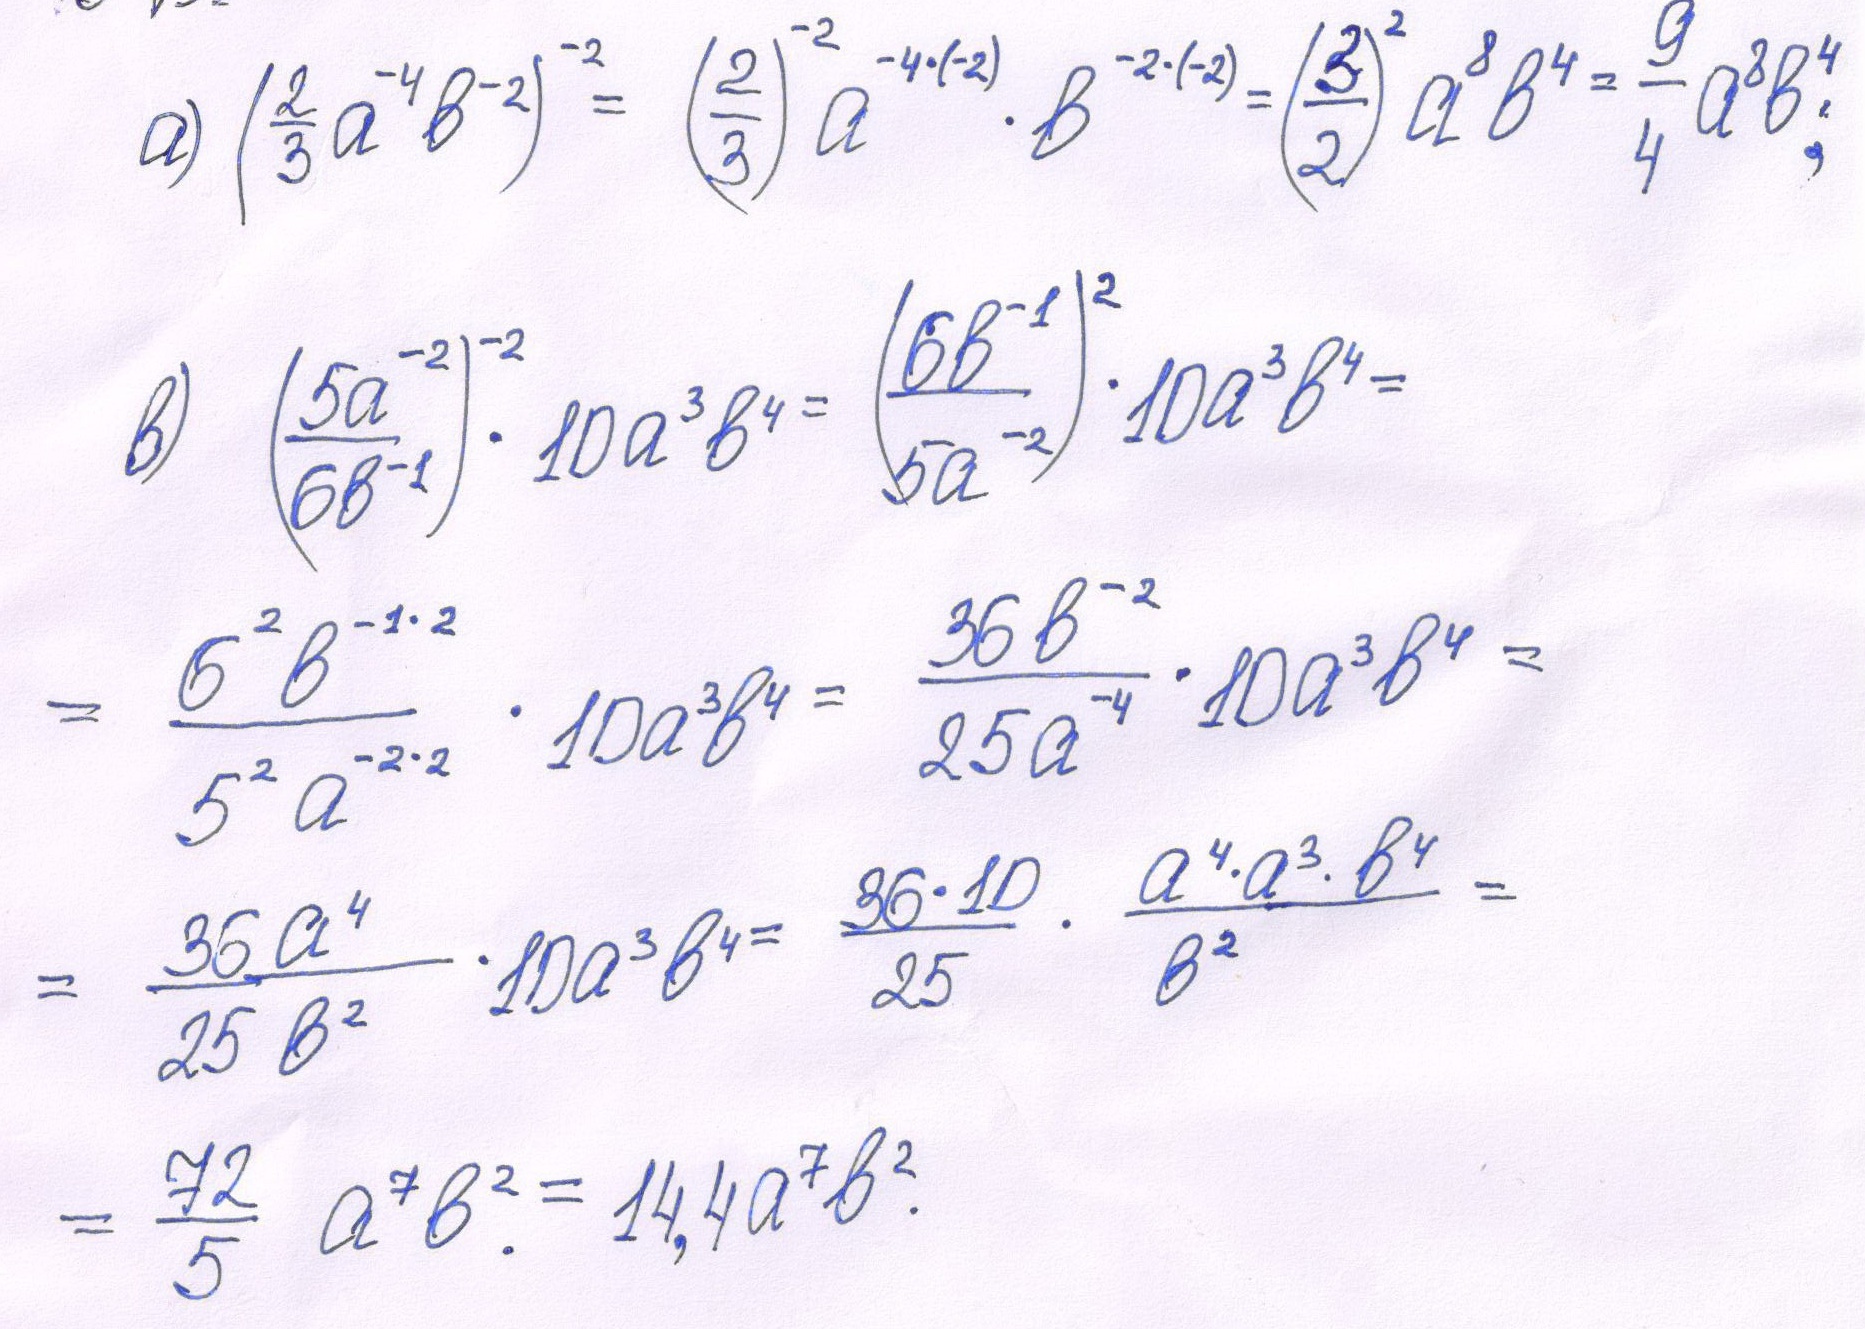 а) (2/3 a^-4 b^-2)^-2 = (2/3)^-2 a^-4·(-2) · b^-2·(-2) = (3/2)^2 a^8 b^4 = 9/4 a^8 b^4;
в) (5a^-2 / 6b^-1)^-2 · 10a^3 b^4 = (6b^-1 / 5a^-2)^2 · 10a^3 b^4 =
= 6^2 b^-1·2 / 5^2 a^-2·2 · 10a^3 b^4 = 36b^-2 / 25a^-4 · 10a^3 b^4 =
= 36a^4 / 25b^2 · 10a^3 b^4 = 36·10 / 25 · a^4·a^3·b^4 / b^2 =
= 72/5 a^7 b^2. = 14,4a^7 b^2.